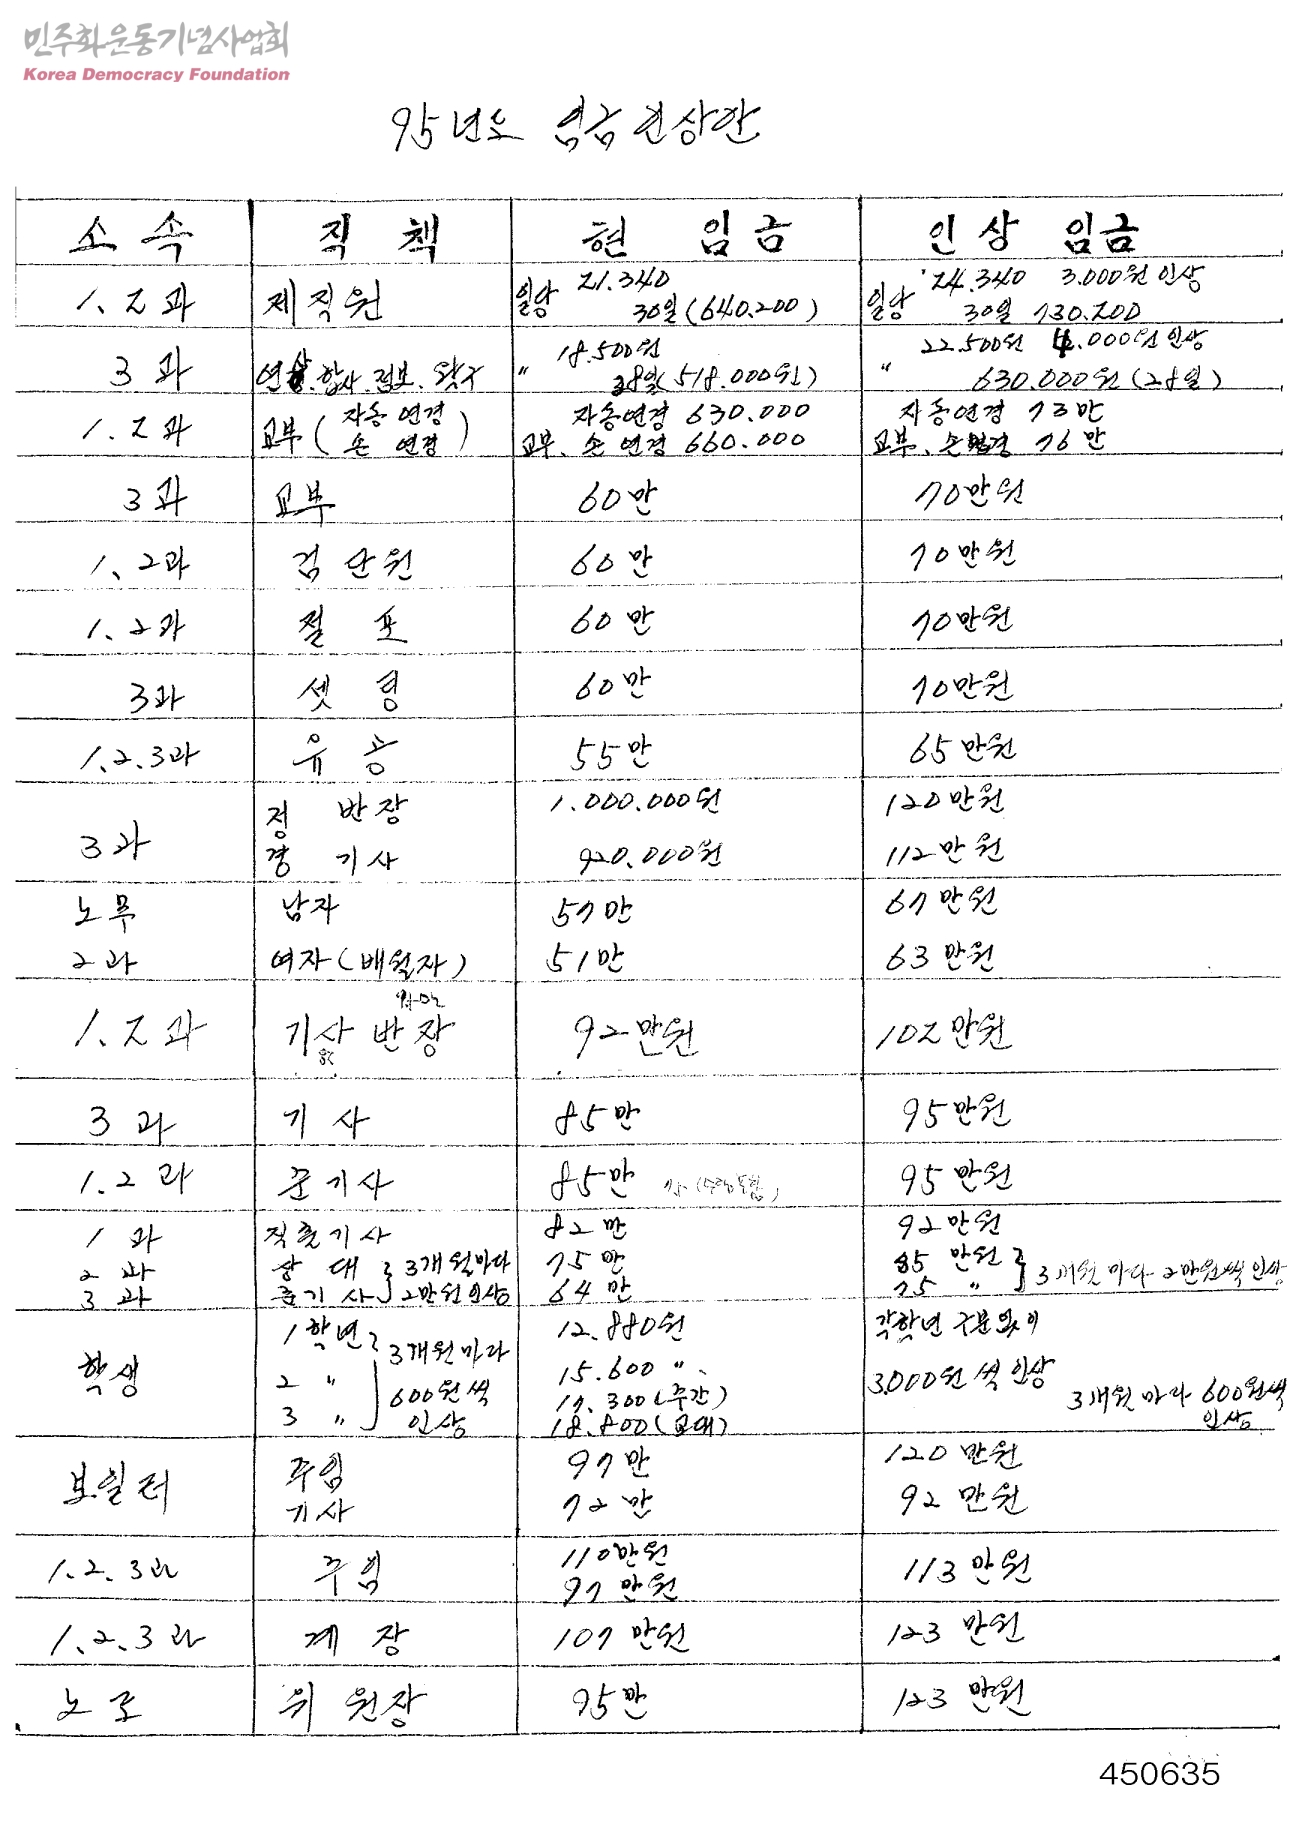 민주화운동기념사업회
Korea Democracy Foundation
95년도 임금 인상안
소 속 직 책 현 임금 인상 임금
1. 2과 제직원 일당 21.340 30일(640.200) 일당 24.340 3.000원 인상 30일 730.200
3과 연사.합사.정보. 18.500원 " 28일(518.000원) 22.500원 4.000원 인상 " 630.000원(28일)
1.2과 교부( 자동 연경 손 연경 ) 자동연경 630.000 교부、손 연경 660.000 자동연경 73만 교부、손연경 76만
3과 교부 60만 70만원
1、2과 검단원 60만 70만원
1.2과 절 포 60만 70만원
3과 셋 팅 60만 70만원
1.2.3과 유 공 55만 65만원
3과 정 반장 1.000.000원 120만원
경 기사 920.000원 112만원
노무 남자 57만 67만원
2과 여자(배월자) 51만 63만원
1.2과 기사 반장 92만원 102만원
3과 기사 85만 95만원
1.2과 준기사 85만 95만원
1과 직출기사 82만 92만원
2과 상 대 3개월마다 75만 85만원
3과 준기사 2만원인상 64만 75 " 3개월마다 2만원씩 인상
학생 1학년 3개월마다 12.880원 각학년 구분없이
2 " 600원씩 15.600 " 3.000원씩 인상
3 " 인상 17.300(주간) 3개월마다 600원씩
18.800(교대) 인상
보일러 주임 97만 120만원
기사 72만 92만원
1.2.3과 주임 110만원 97만원 113만원
1.2.3과 계장 107만원 123만원
노조 위원장 95만 123만원
450635